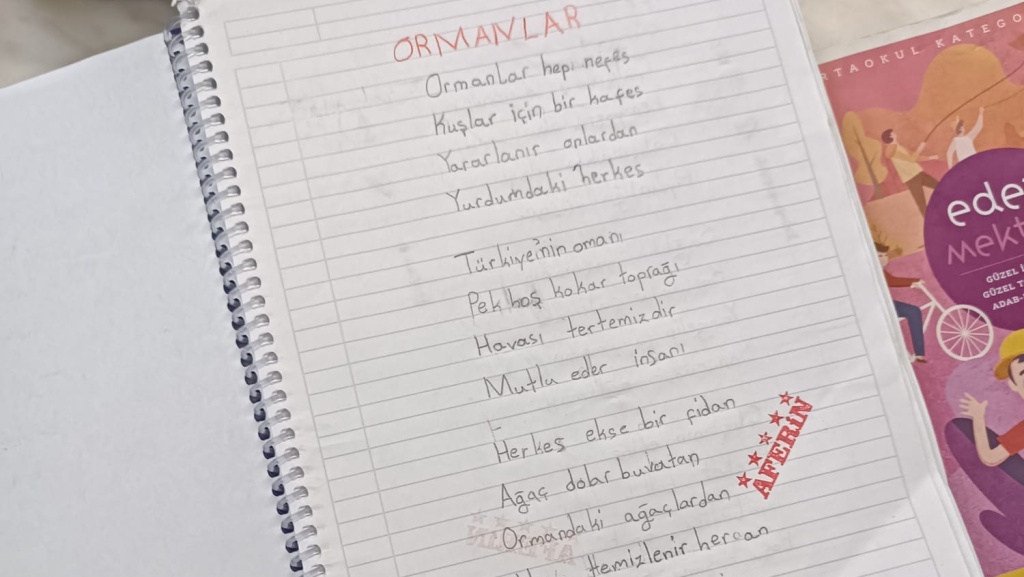 ORMANLAR
Ormanlar hepi nefes
Kuşlar için bir kafes
Yararlanır onlardan
Yurdumdaki herkes
Türkiye'nin omanı
Pek hoş kokar toprağı
Havası tertemizdir
Mutlu eder insanı
Herkes ekse bir fidan
Ağaç dolar bu vatan
Ormandaki ağaçlardan
temizlenir her can
AFERİN
RTAOKUL KATEGO
ede
mekt
GÜZEL İ
GÜZEL T
ADAB-